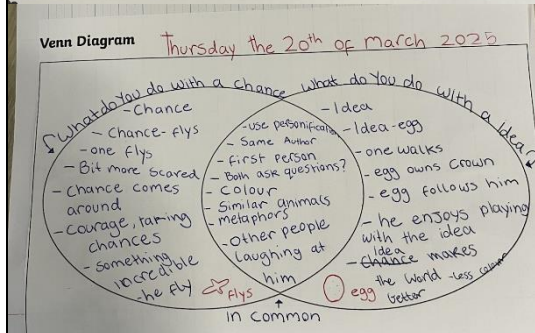 Venn Diagram Thursday the 20th of march 2025
What do You do with a chance
- Chance
- Chance-flys
- one flys
- Bit more scared
- chance comes
around
- courage, taking
chances
- something
incredible
- he fly
flys
- use personification
- Same Author
- first Person
- Both ask questions?
- colour
- Similar animals
- metaphors
- Other people
laughing at
him
in common
what do You do with a idea?
- Idea
- Idea-egg
- one walks
- egg owns crown
- egg follows him
- he enjoys playing
with the idea
Idea
- Chance makes
the world - less
better
egg